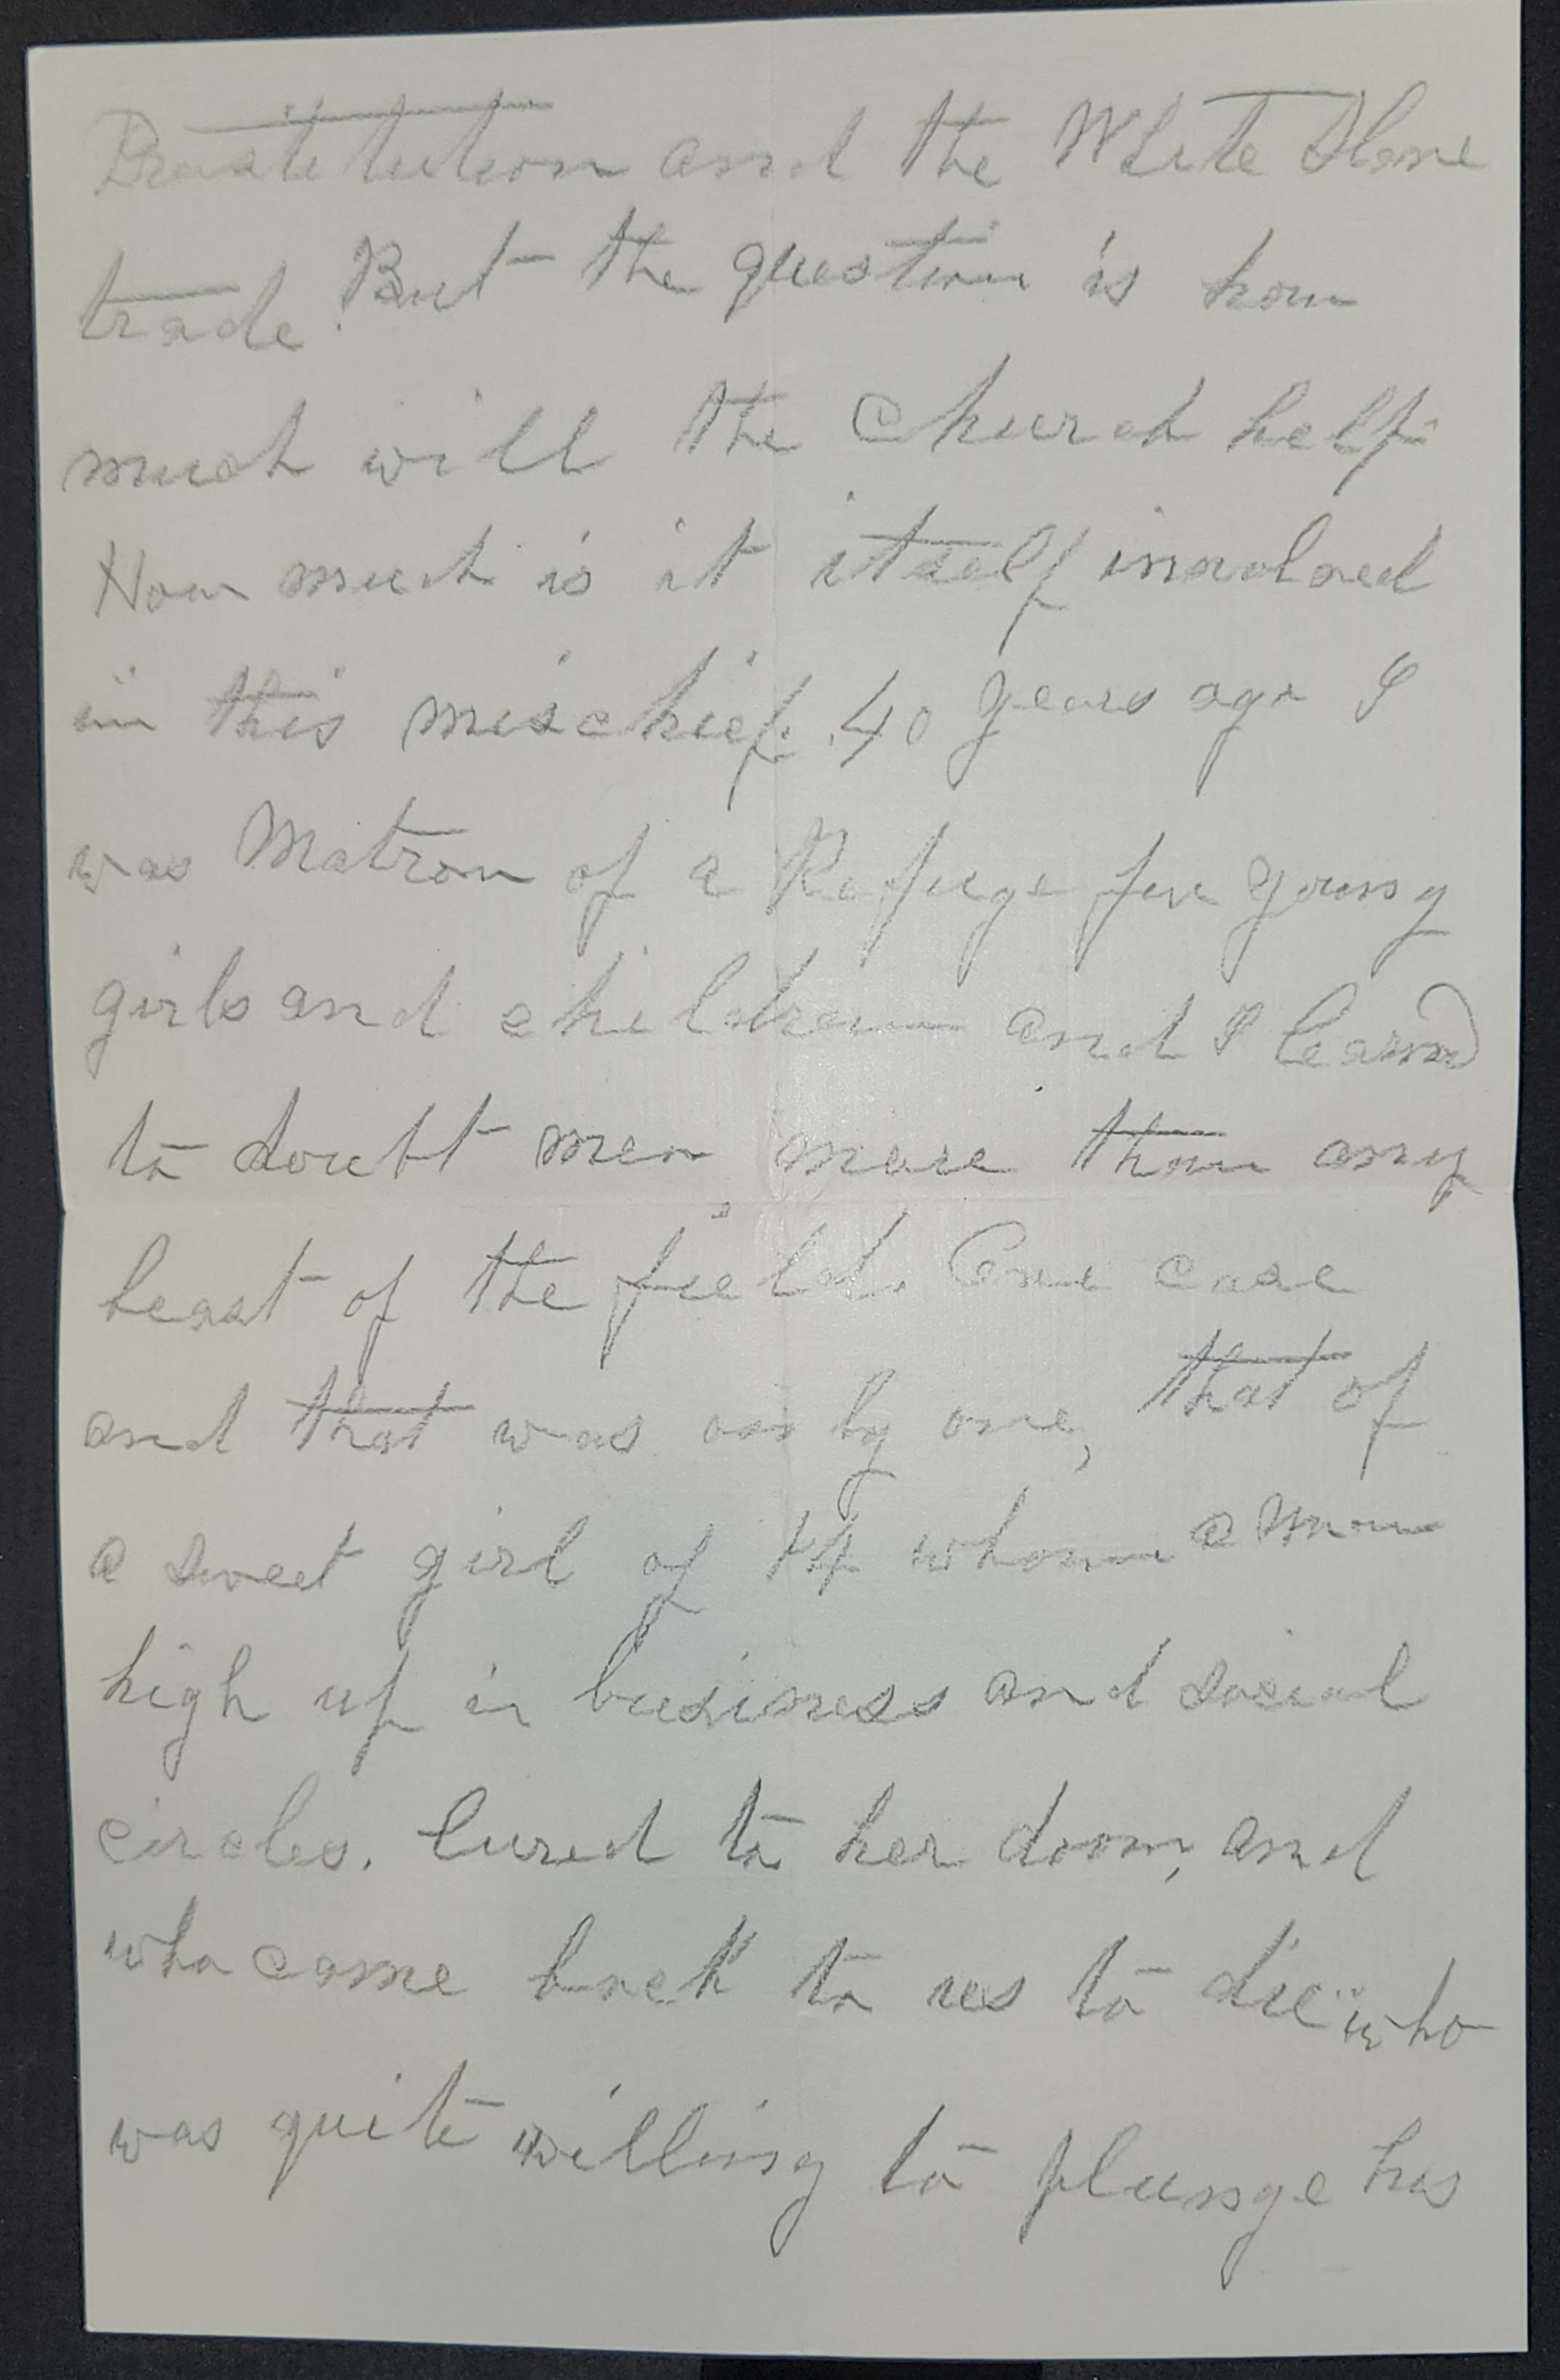 Prostitution and the White Slave
trade. But the question is how
much will the Church help
How much is it itself involved
in this mischief. 40 years ago I
was Matron of a Refuge for young
girls and children and I learnd
to doubt men more than any
beast of the field. One case
and that was only one, that of
a sweet girl of 14 whom a man
high up in business and social
circles. lured to her doom, and
who came back to us to die who
was quite willing to plunge his